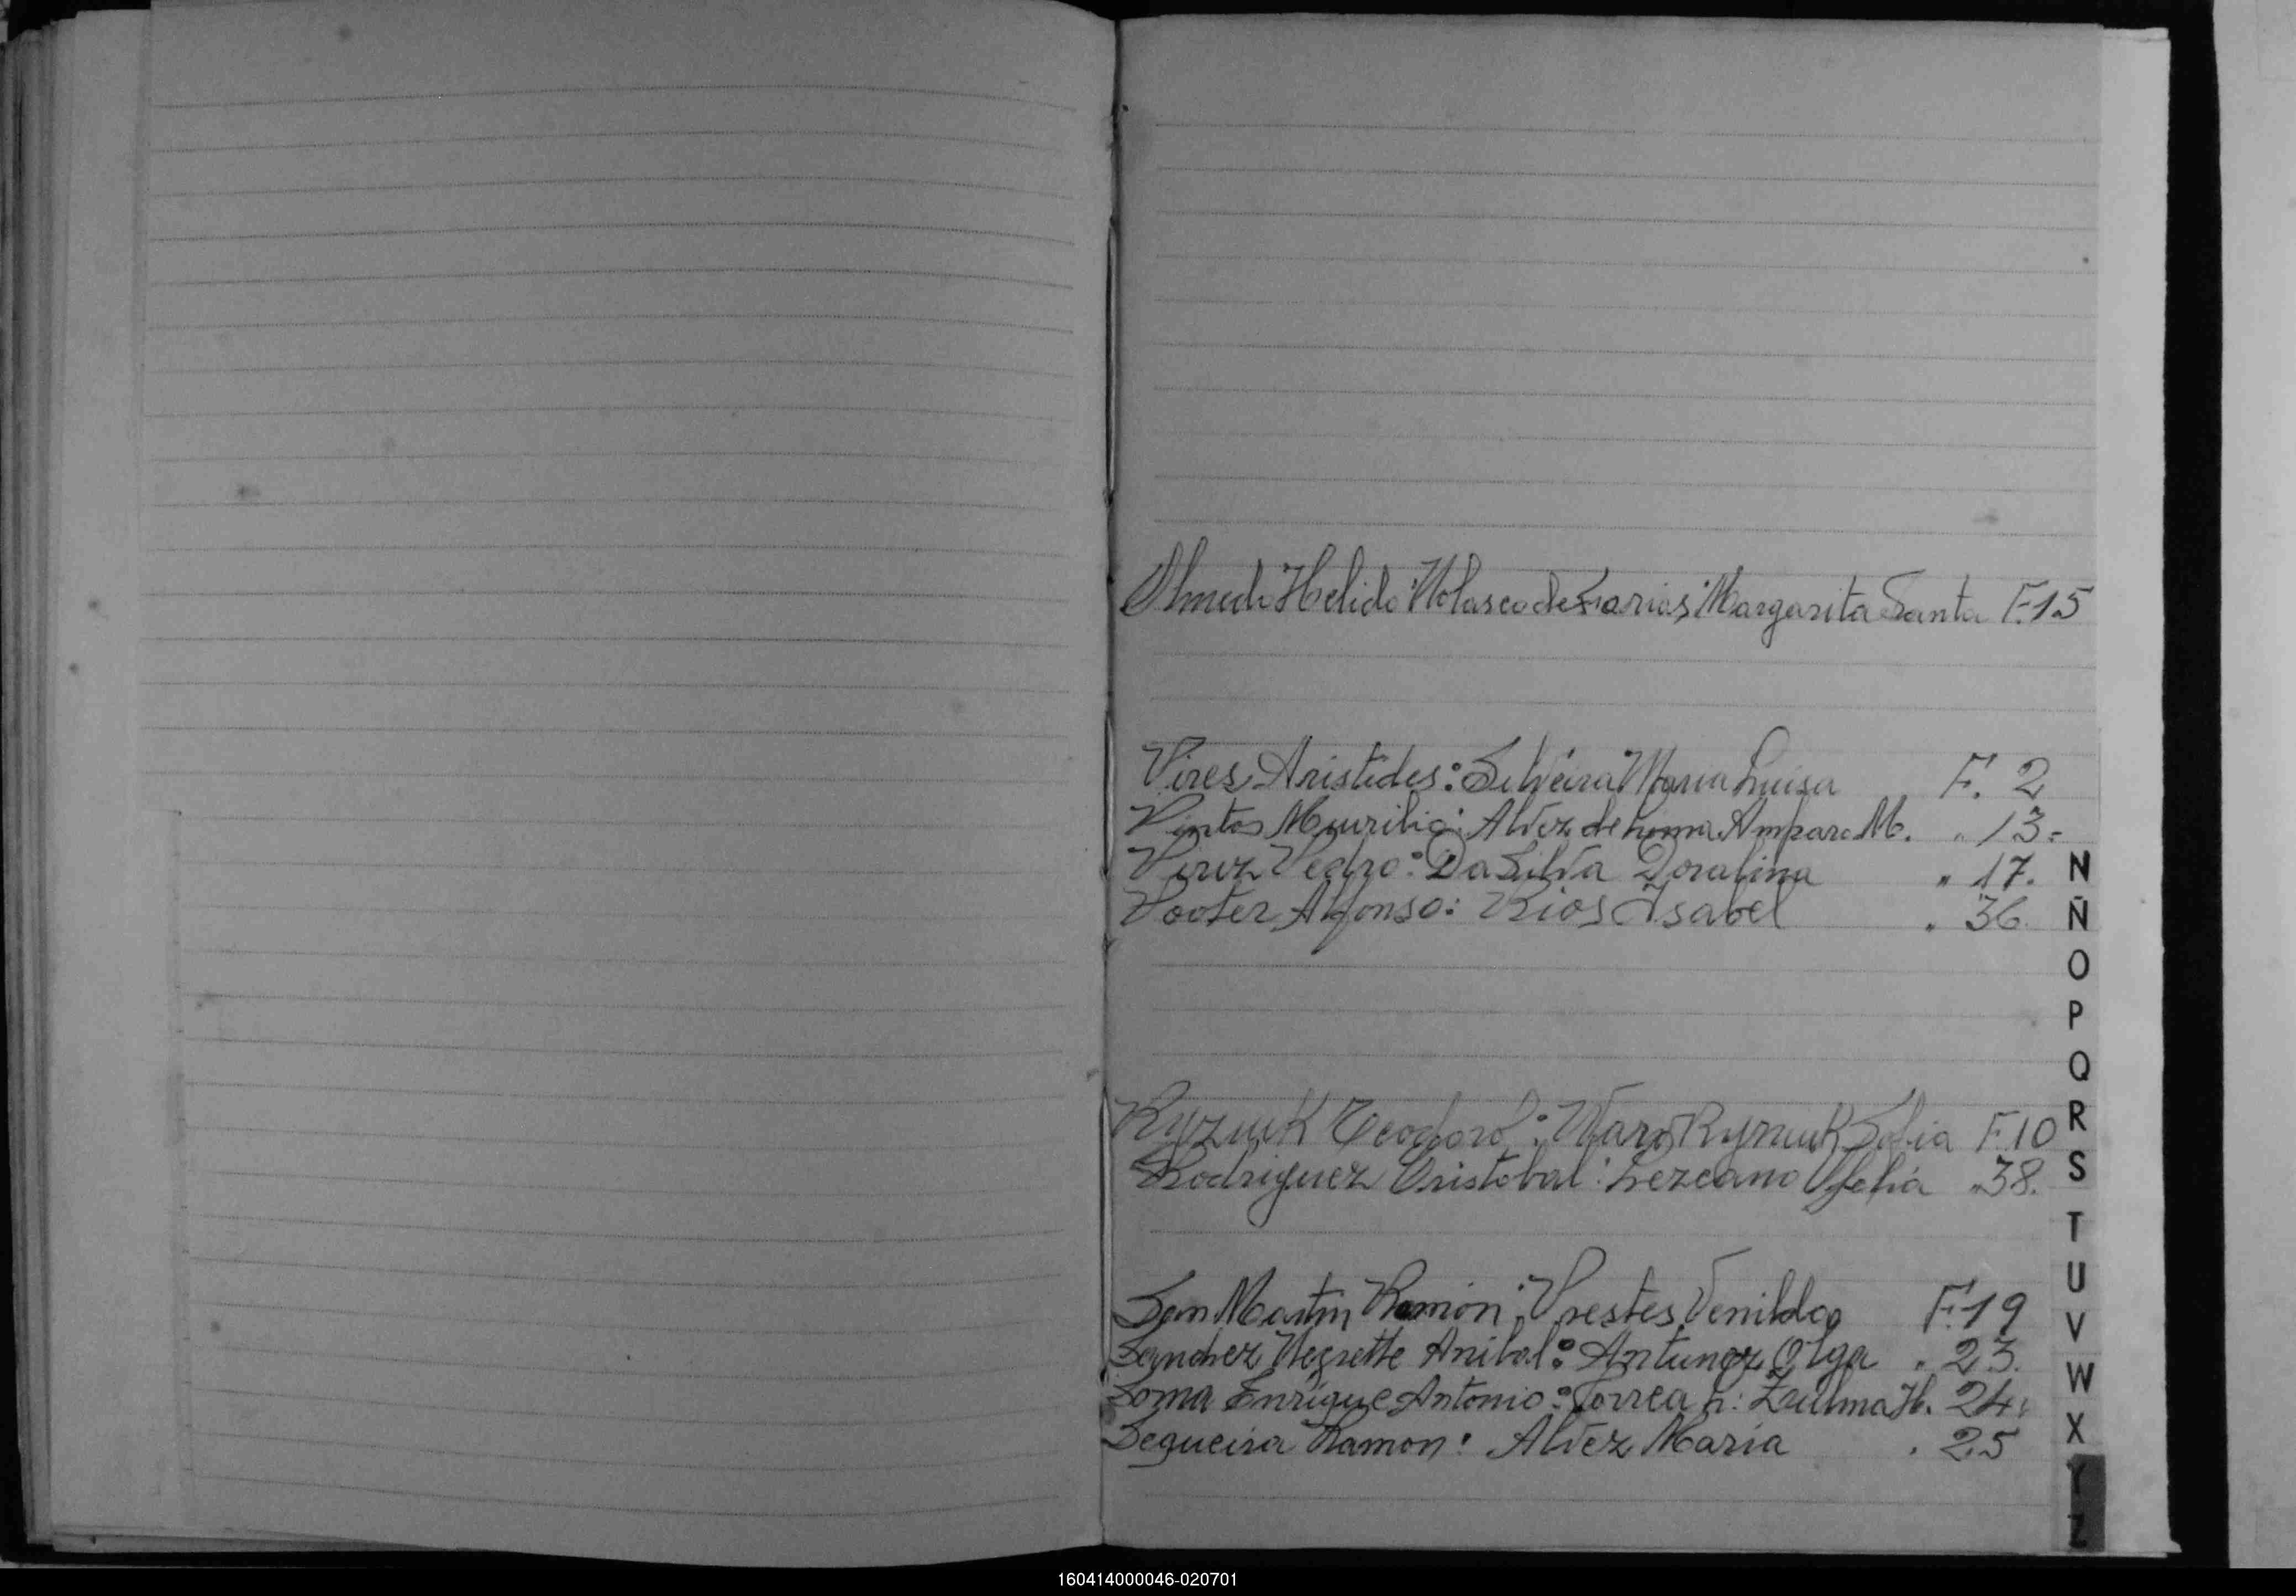 Olmedo Helido: Nolasco de Farias Margarita Santa F. 15
Pires Aristides: Silveira Maria Luisa F. 2
Pintos Maurilio: Alvez de Lima Amparo M. " 13=
Perez Pedro: Da Silva Doralina " 17.
Pooter Alfonso: Rios Isabel " 36.
Ryzuk Teodoro: Sofia F. 10
Rodriguez Cristobal: Lezcano Ofelia " 38.
San Martin Ramon: Prestes Venilda F. 19
Sanchez Negrette Anibal: Antunez Olga " 23.
Soma Enrique Antonio: Correa Zulma H. 24.
Sequeira Ramon: Alvez Maria " 25
N
Ñ
O
P
Q
R
S
T
U
V
W
X
Y
Z
160414000046-020701